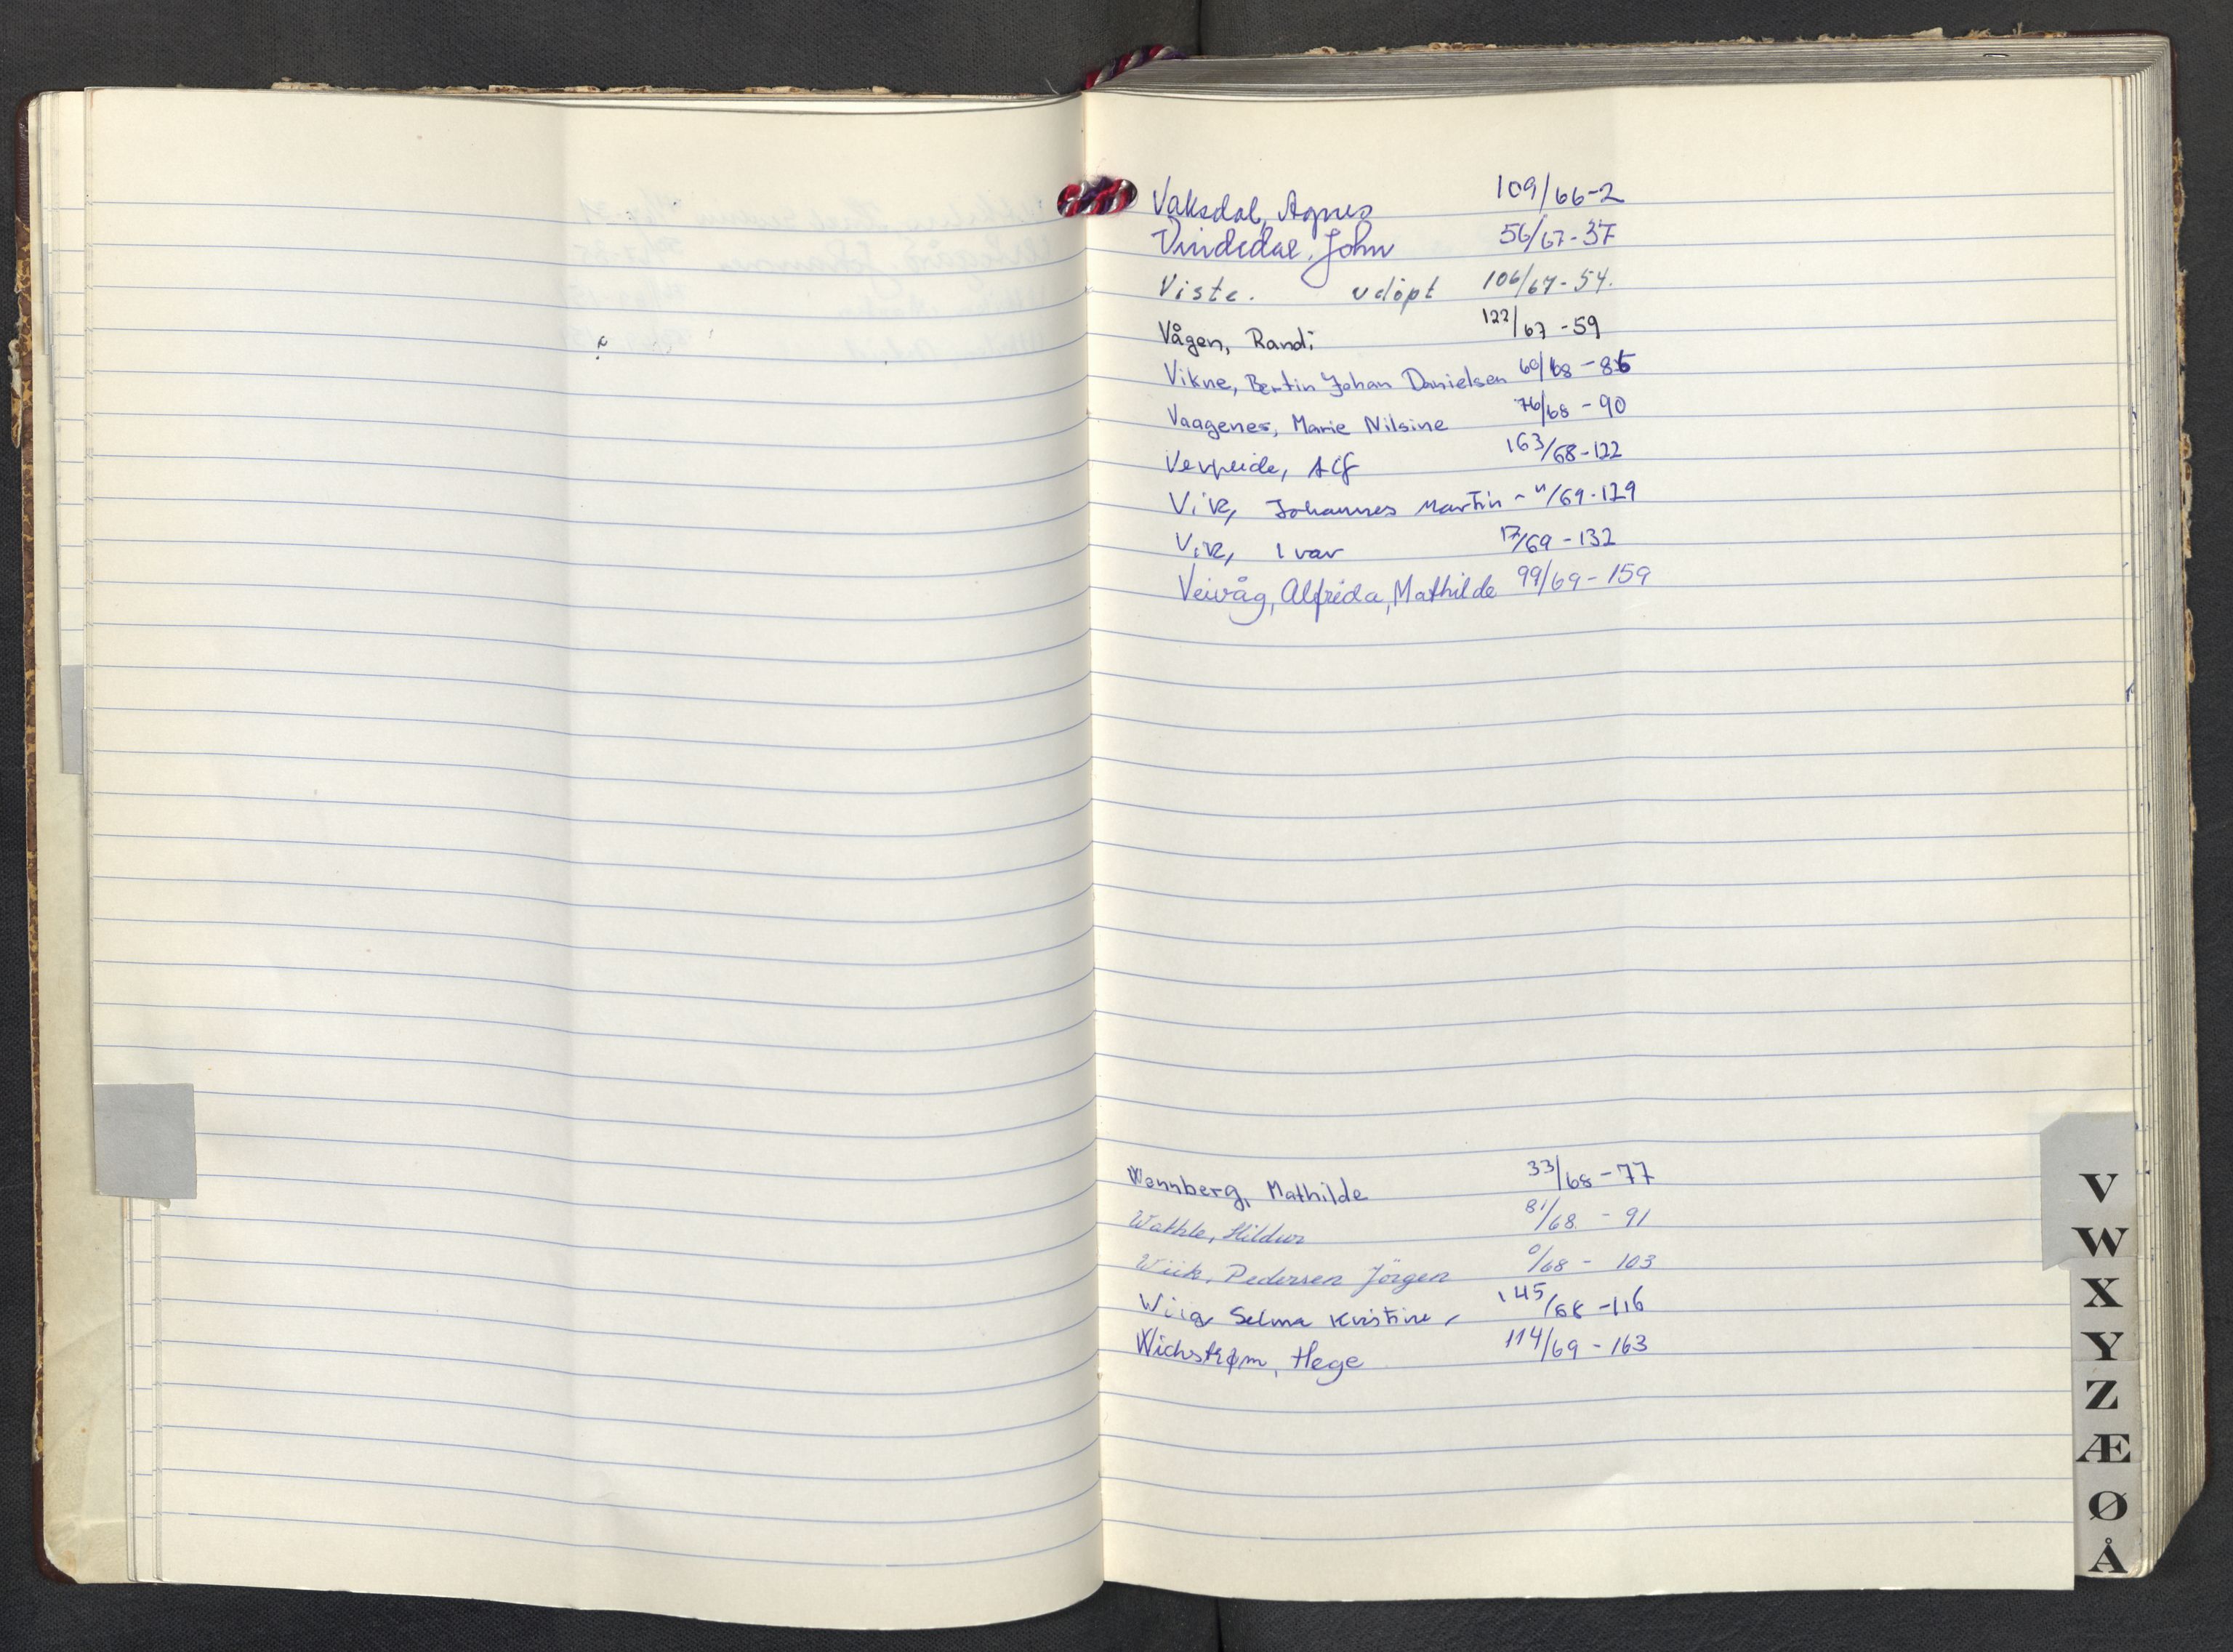 Vaksdal, Agnes 109/66-2
Vindedal, John 56/67-37
Viste. udöpt 106/67-54.
Vågen, Randi 122/67-59
Vikne, Bertin Johan Danielsen 60/68-85
Vaagenes, Marie Nilsine 76/68-90
Verpeide, Alf 163/68-122
Vik, Johannes Martin - 11/69-129
Vik, Ivar 17/69-132
Veivåg, Alfrida, Mathilde 99/69-159
Wennberg, Mathilde 33/68-77
Wathle, Hildur 81/68 - 91
Wiik, Pedersen Jörgen 0/68 - 103
Wiig, Selma Kristine, 145/68-116
Wichstrøm, Hege 114/69-163
V
W
X
Y
Z
Æ
Ø
Å